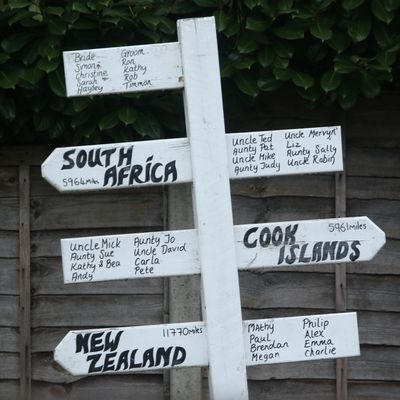 Bride Groom
Simon Ron
Christine Kathy
Sarah Rob
Hayley Timmon
SOUTH AFRICA
5964 miles
Uncle Ted Uncle Mervyn
Aunty Pat Liz
Uncle Mike Aunty Sally
Aunty Judy Uncle Robin
Uncle Mick Aunty Jo
Aunty Sue Uncle David
Kathy & Bea Carla
Andy Pete
5961 miles
COOK
ISLANDS
11770 miles
NEW
ZEALAND
Mathy Philip
Paul Alex
Brendan Emma
Megan Charlie